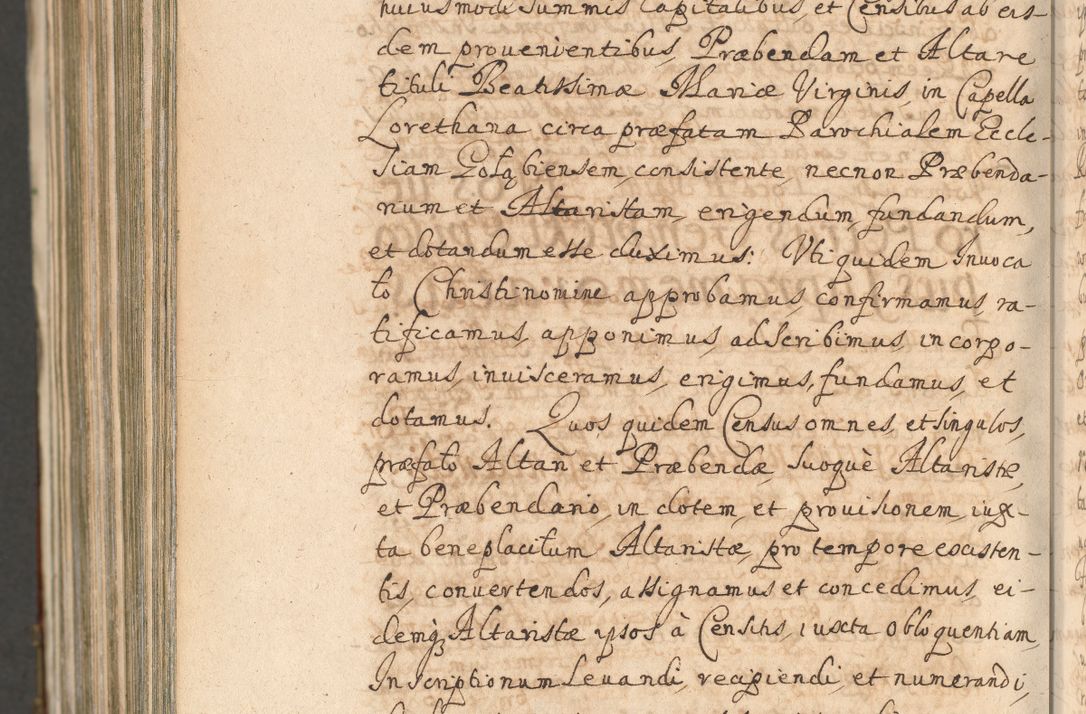 huiusmodi Summis Capitalibus, et Censibus ab eis-
dem prouenientibus, Præbendam et Altare
tituli Beatissimæ Mariæ Virginis, in Capella
Lorethana circa præfatam Parochialem Eccle-
siam Gołąbiensem, consistente, necnon Præbenda-
rium et Altaristam, erigendum, fundandum,
et dotandum esse duximus: Uti quidem Inuoca
to Christi nomine approbamus, confirmamus, ra-
tificamus, apponimus, adscribimus, incorpo-
ramus, inuisceramus, erigimus, fundamus, et
dotamus. Quos quidem Census omnes, et singulos,
præfato Altari et Præbendæ, suoquè Altaristæ,
et Præbendario, in dotem, et prouisionem, iux-
ta beneplacitum Altaristæ, pro tempore existen-
tis, conuertendos, assignamus et concedimus, ei-
demq́ꝫ Altaristæ ipsos à Censitis, iuxta obloquentiam
Inscriptionum leuandi, recipiendi, et numerandi,